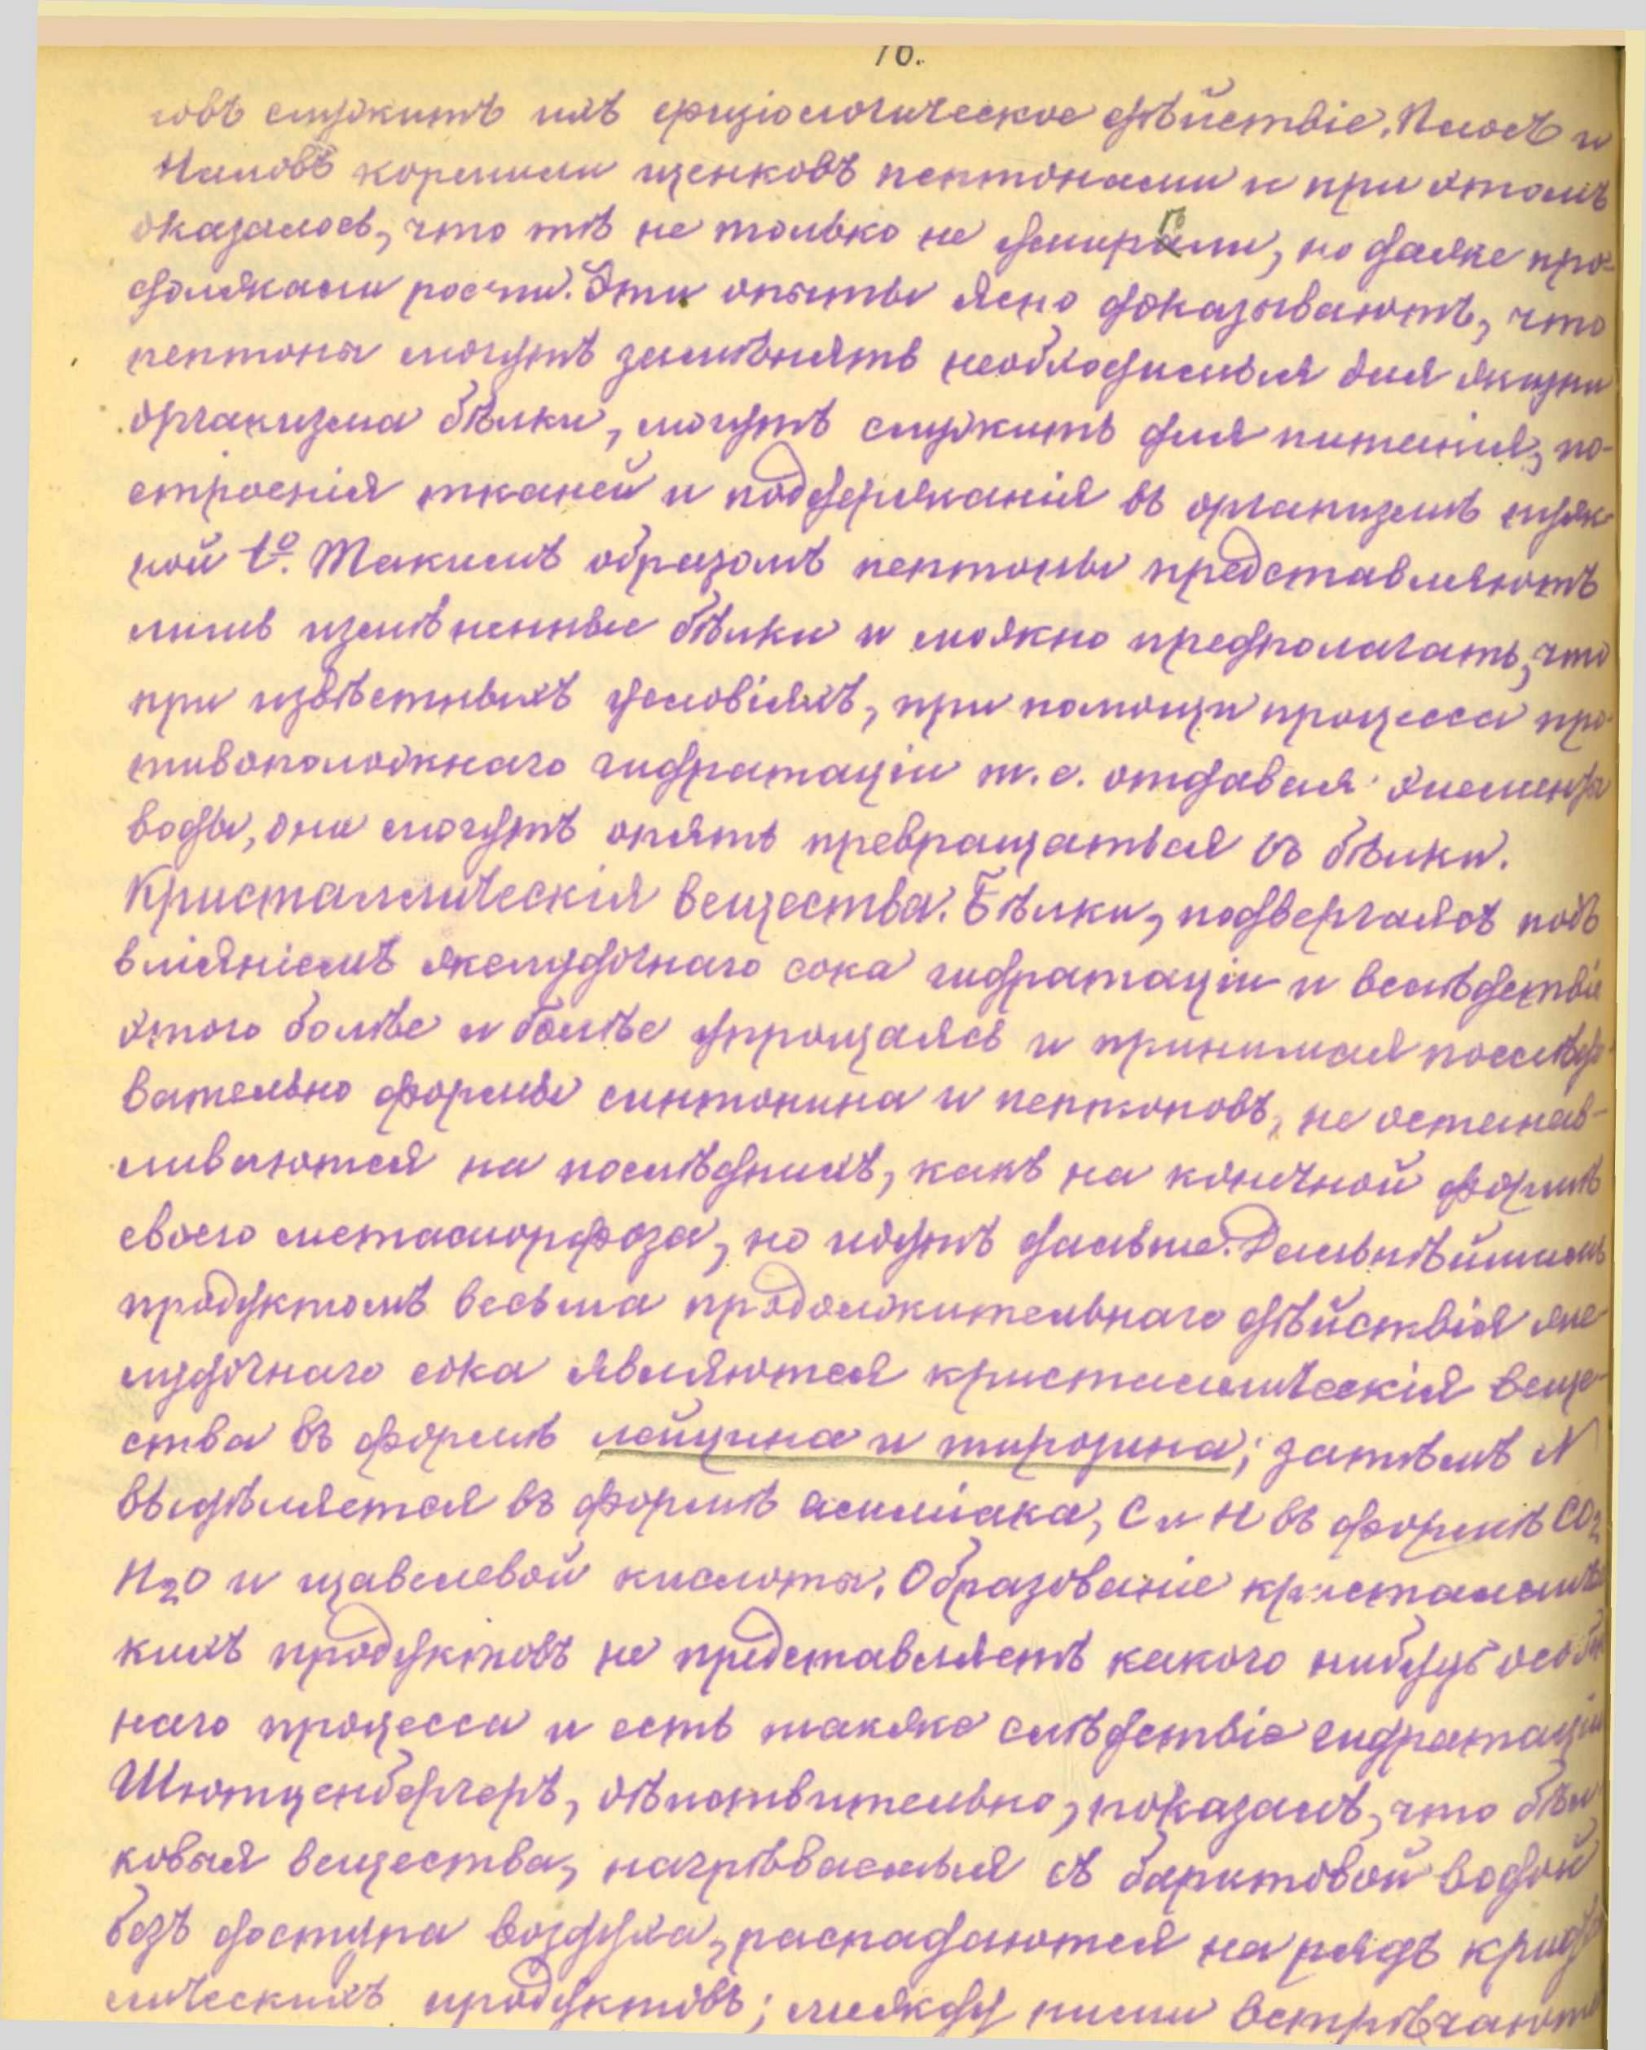 76.
говъ служитъ ихъ физіологическое дѣйствіе. Плосъ и
кормили щенковъ пептонами и при этомъ
оказалось, что тѣ не только не умирали, но даже про-
должали рости. Эти опыты ясно доказываютъ, что
пептоны могутъ замѣнять необходимыя для жизни
организма бѣлки, могутъ служить для питанія, по-
строенія тканей и поддержанія въ организмѣ нуж-
ной t°. Такимъ образомъ пептоны представляютъ
лишь измѣненные бѣлки и можно предполагать, что
при извѣстныхъ условіяхъ, при помощи процесса про-
тивоположнаго гидратаціи т.е. отдавая элементы
воды, они могутъ опять превращаться въ бѣлки.
Кристаллическія вещества. Бѣлки, подвергаясь подъ
вліяніемъ желудочнаго сока гидратаціи и вслѣдствіе
этого болѣе и болѣе упрощаясь и принимая послѣдо-
вательно формы синтонина и пептоновъ, не останав-
ливаются на послѣднихъ, какъ на конечной формѣ
своего метаморфоза, но идутъ дальше. Дальнѣйшимъ
продуктомъ весьма продолжительнаго дѣйствія же-
лудочнаго сока являются кристаллическія веще-
ства въ формѣ лейцина и тирозина; затѣмъ N
выдѣляется въ формѣ амміака, C и H въ формѣ CO2
H2O и щавелевой кислоты. Образованіе кристалличе
кихъ продуктовъ не представляетъ какого нибудь особен
наго процесса и есть также слѣдствіе гидратаціи
Шютценбергеръ, дѣйствительно, показалъ, что бѣл-
ковыя вещества, нагрѣваемыя съ баритовой водой
безъ доступа воздуха, распадаются на рядъ криста
лическихъ продуктовъ; между ними встрѣчаются